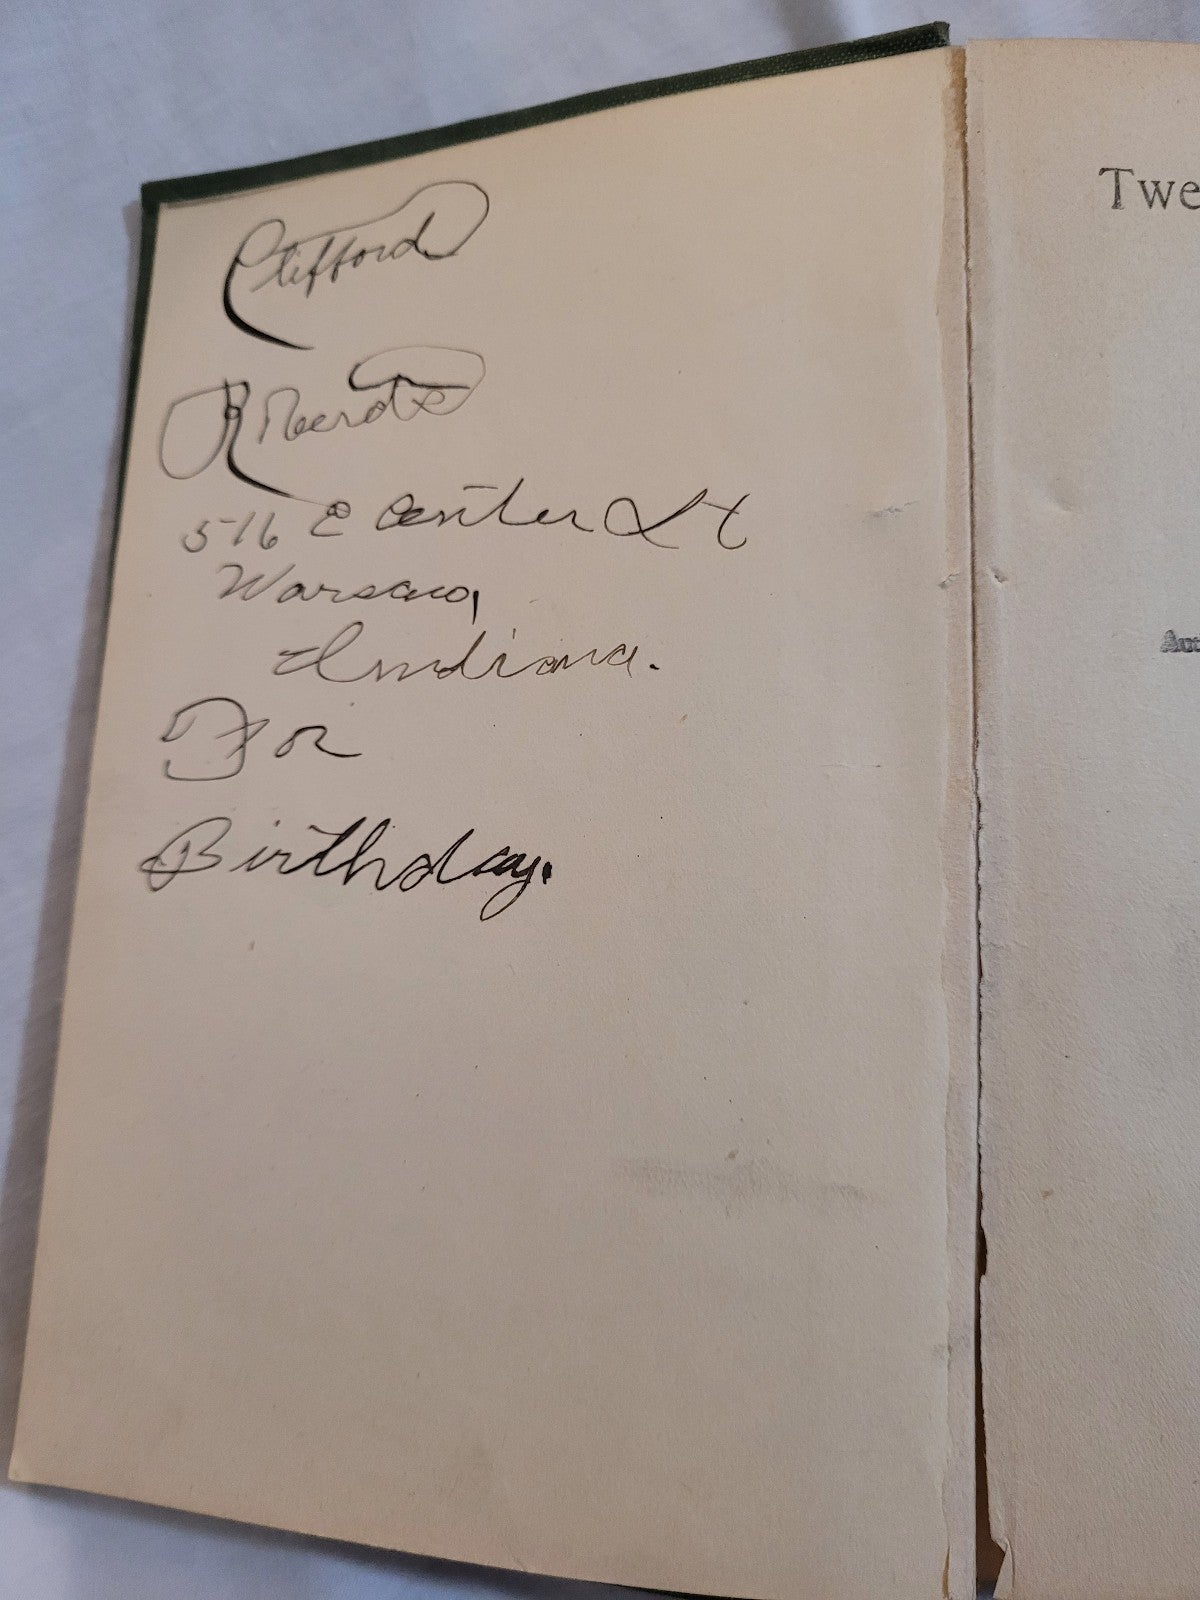 Clifford
516 E Center St
Warsaw,
Indiana.
For
Birthday.
Twe
Aut